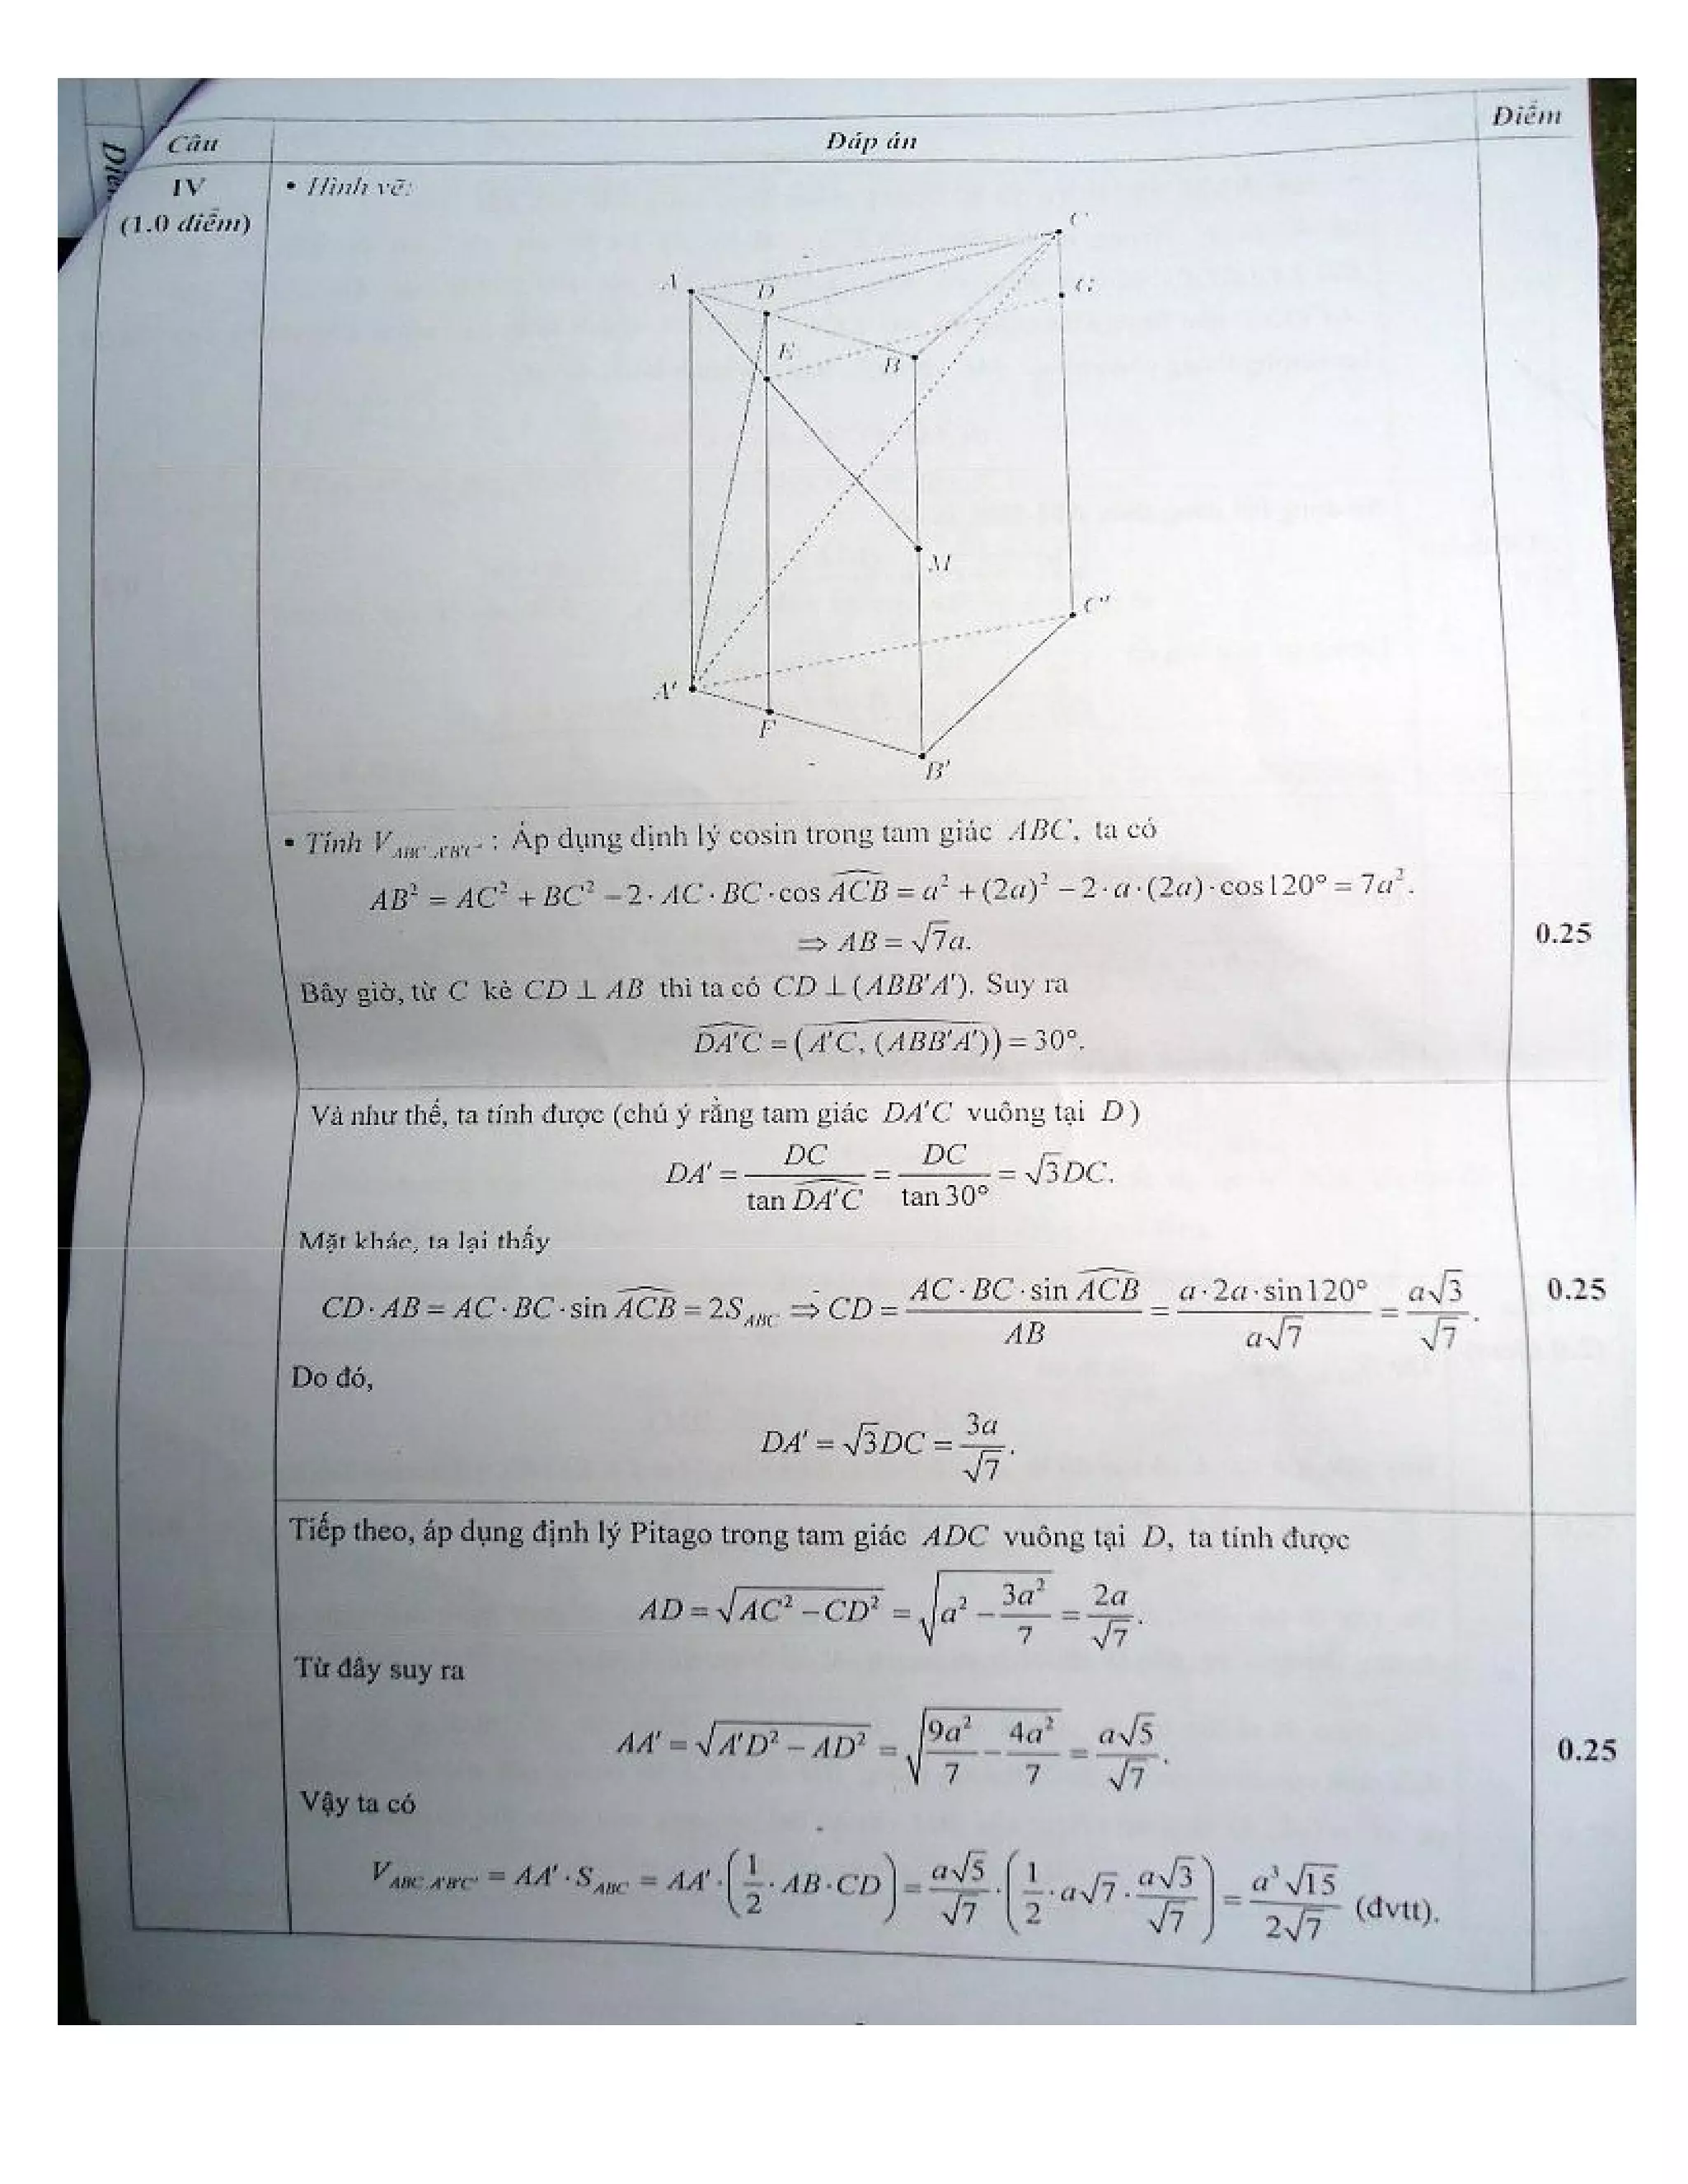 Điểm
Câu
Đáp án
IV
(1.0 điểm)
• Hình vẽ:
C
A
D
G
E
B
M
C'
A'
F
B'
• Tính V_{ABC.A'B'C'} : Áp dụng định lý cosin trong tam giác ABC, ta có
AB² = AC² + BC² − 2·AC·BC·cos ACB = a² + (2a)² − 2·a·(2a)·cos120° = 7a².
⇒ AB = √7a.
0.25
Bây giờ, từ C kẻ CD ⊥ AB thì ta có CD ⊥ (ABB'A'). Suy ra
DA'C = (A'C, (ABB'A')) = 30°.
Và như thế, ta tính được (chú ý rằng tam giác DA'C vuông tại D)
DA' = DC / tan DA'C = DC / tan 30° = √3DC.
Mặt khác, ta lại thấy
CD·AB = AC·BC·sin ACB = 2S_{ABC} ⇒ CD = AC·BC·sin ACB / AB = a·2a·sin120° / a√7 = a√3 / √7.
0.25
Do đó,
DA' = √3DC = 3a / √7.
Tiếp theo, áp dụng định lý Pitago trong tam giác ADC vuông tại D, ta tính được
AD = √(AC² − CD²) = √(a² − 3a²/7) = 2a / √7.
Từ đây suy ra
AA' = √(A'D² − AD²) = √(9a²/7 − 4a²/7) = a√5 / √7.
0.25
Vậy ta có
V_{ABC.A'B'C'} = AA'·S_{ABC} = AA'·(1/2·AB·CD) = a√5/√7·(1/2·a√7·a√3/√7) = a³√15 / 2√7 (đvtt).